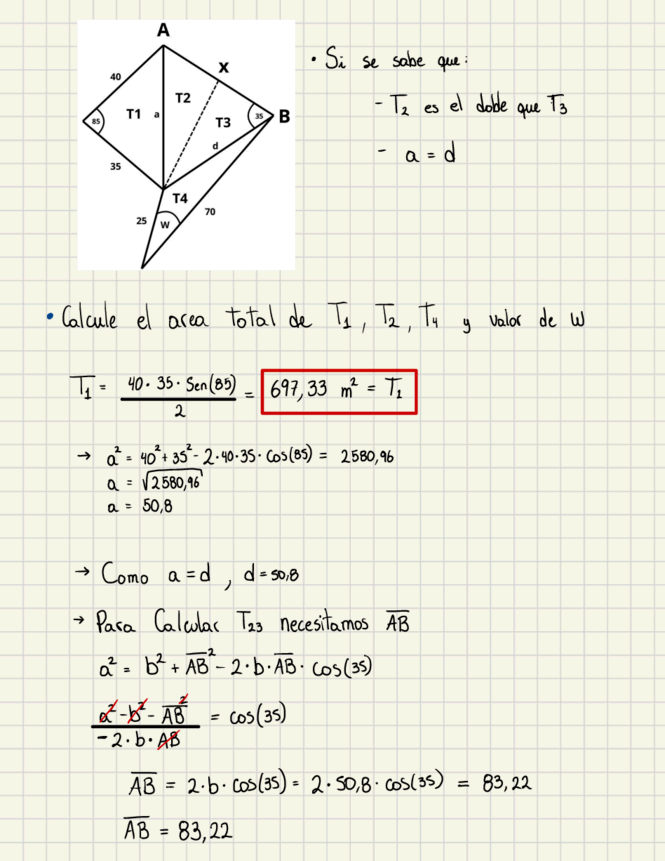 A
40
X
T2
T1
a
85
35
B
T3
d
35
T4
25
W
70
• Si se sabe que:
- T₂ es el doble que T₃
- a = d
• Calcule el area total de T₁, T₂, T₄ y valor de w
T₁ = 40 · 35 · Sen(85) / 2 = 697,33 m² = T₁
→ a² = 40² + 35² - 2·40·35· cos(85) = 2580,96
a = √2580,96
a = 50,8
→ Como a = d , d = 50,8
→ Para Calcular T₂₃ necesitamos A̅B̅
a² = b² + A̅B̅² - 2·b·A̅B̅· cos(35)
a² - b² - A̅B̅² / -2·b·AB = cos(35)
A̅B̅ = 2·b·cos(35) = 2·50,8· cos(35) = 83,22
A̅B̅ = 83,22